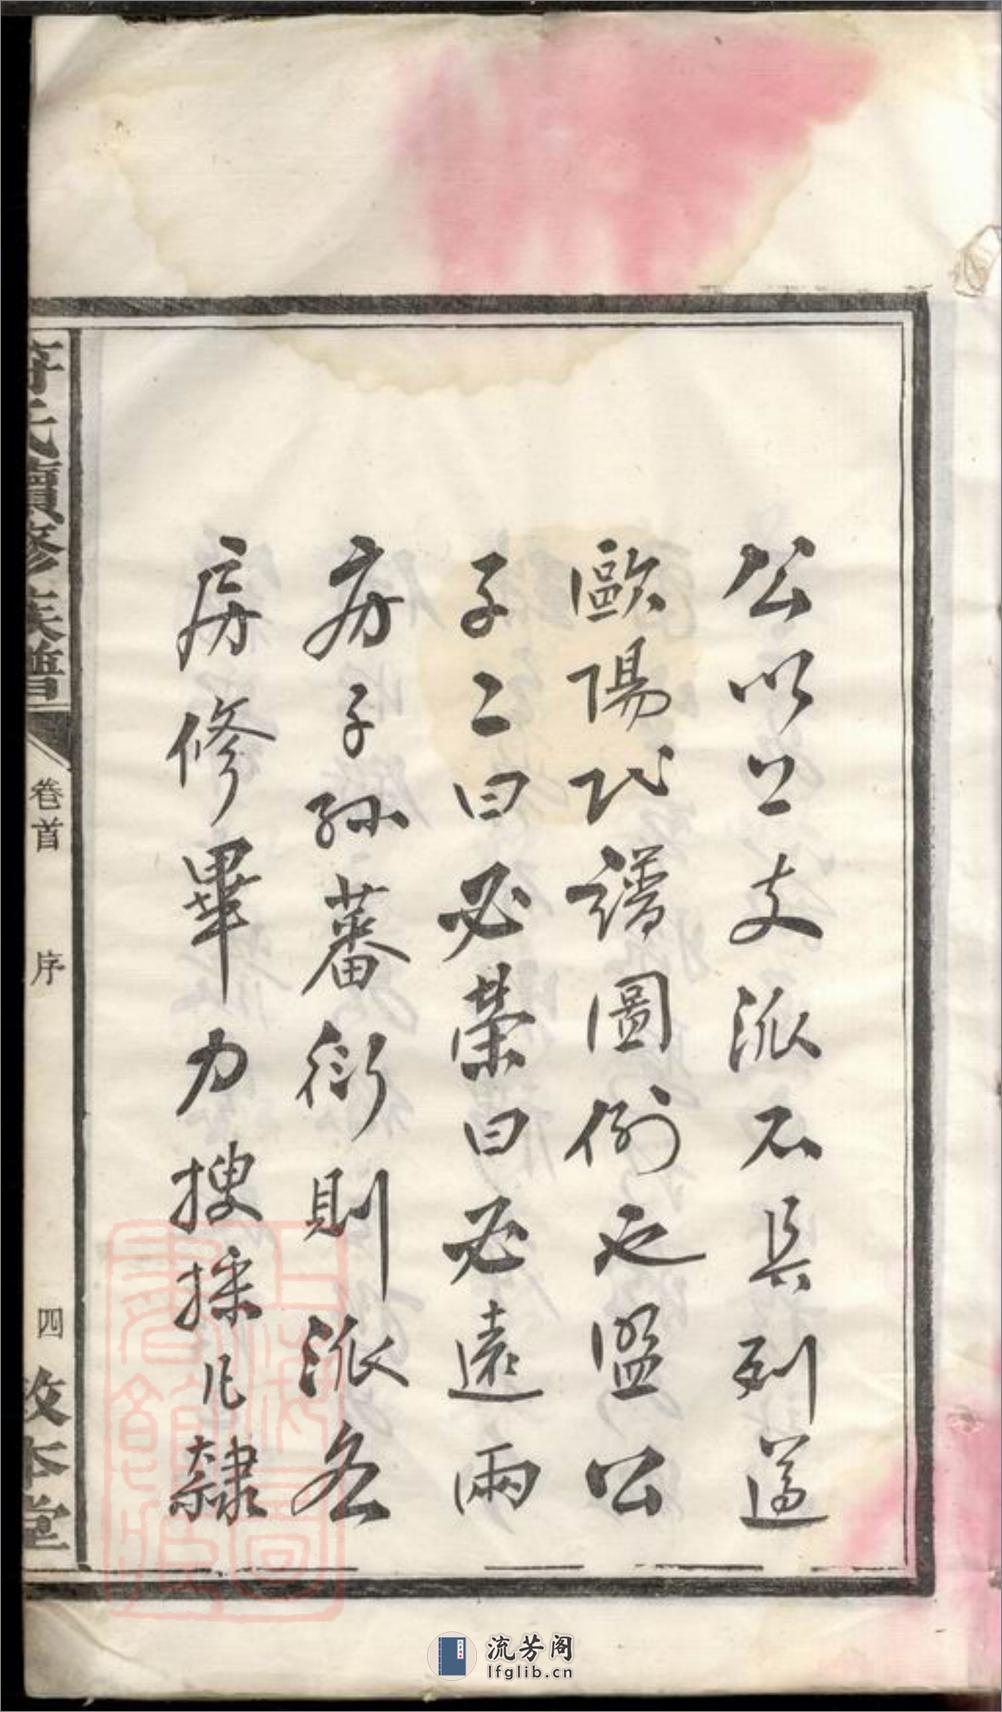 公以上支派不具列遵
歐陽氏譜圖例也盟公
子二曰必榮曰必遠兩
房子孫蕃衍則派各
房修畢力搜採凡隸
氏續修族譜
卷首
序
四
敦本堂
上海圖書館藏
流芳阁
lfglib.cn